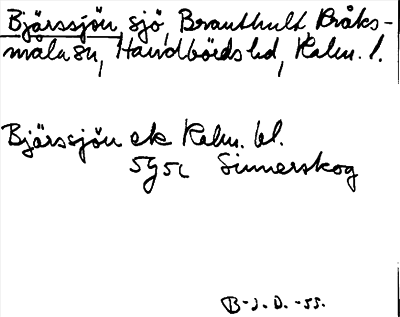 Bjärssjön, sjö, Branthult, Bråks-
måla sn, Handbörds hd, Kalm. l.
Bjärssjön ek Kalm. bl.
5G5c Sinnerskog
B-J. D. -55.